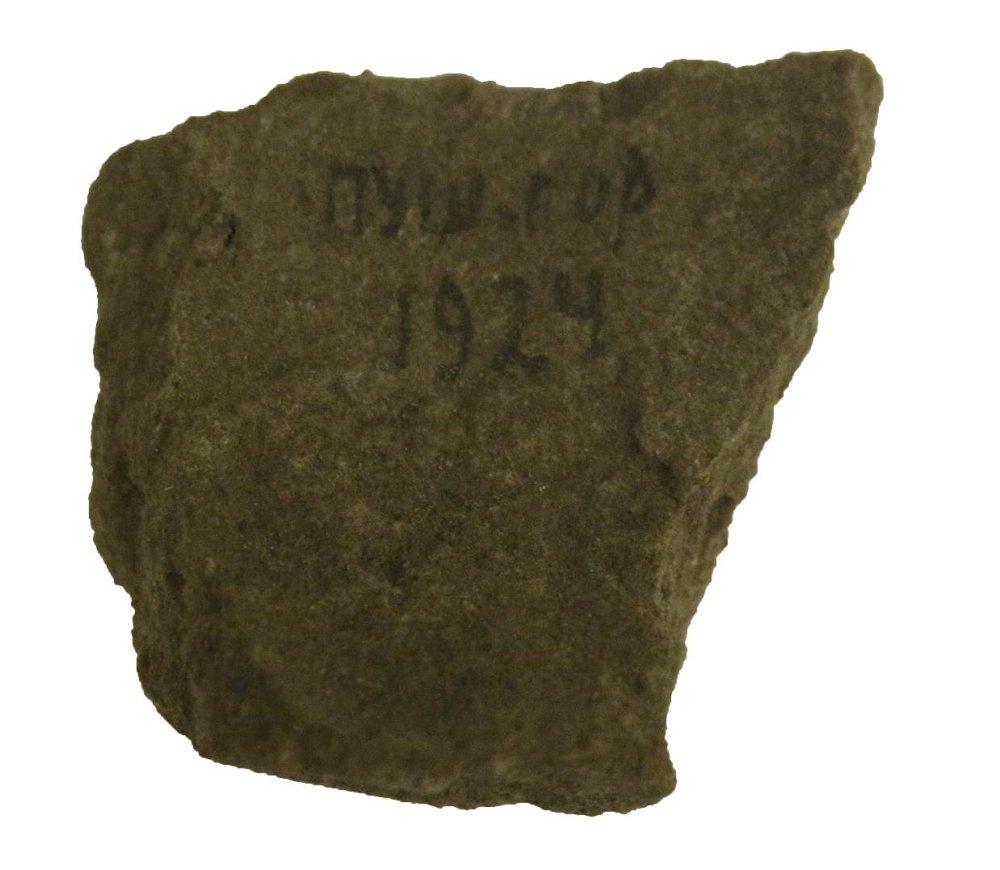 пуш.гор
1924